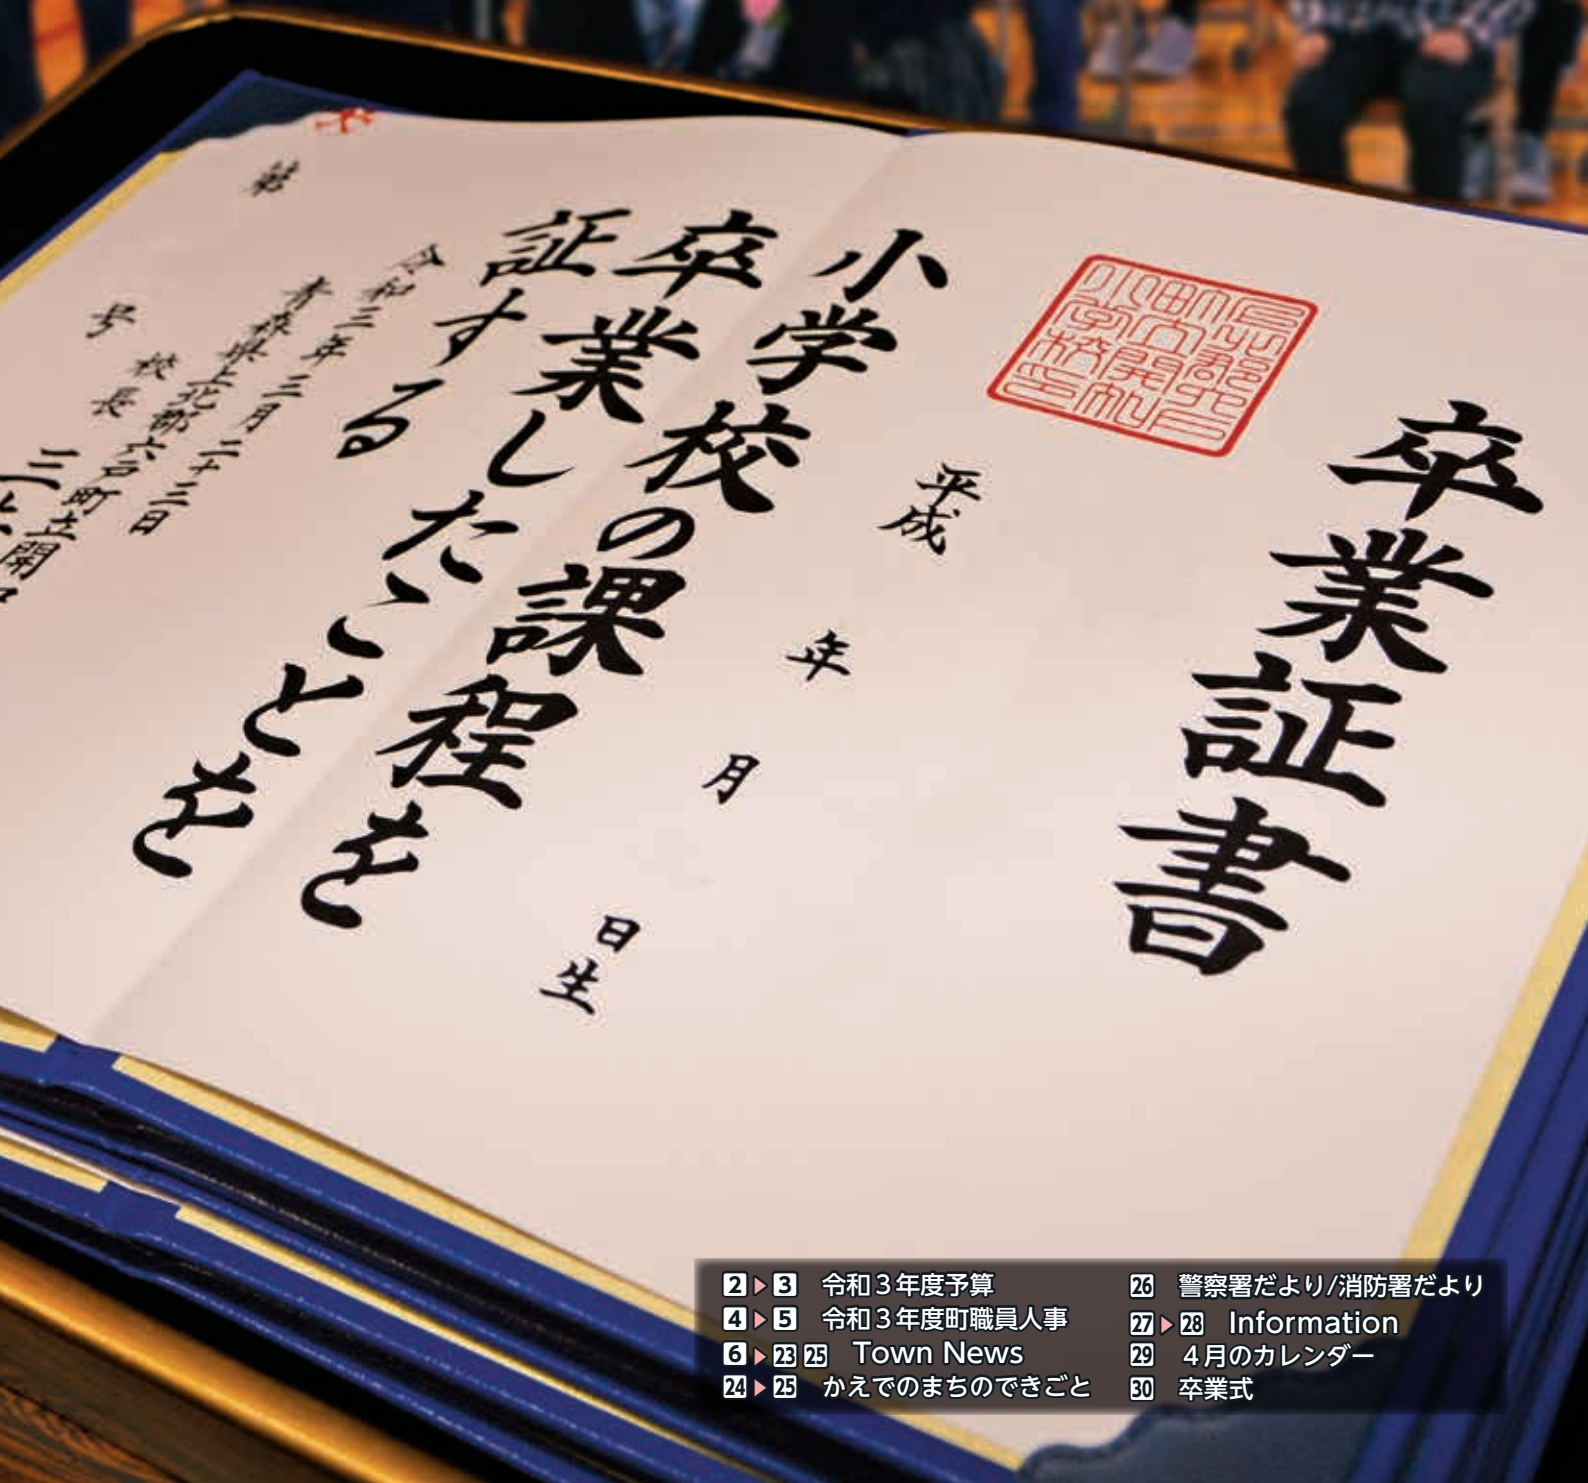 卒業証書
平成 年 月 日生
小学校の課程を
卒業したことを
証する
令和三年三月二十三日
青森県上北郡六戸町立開
校長 三
第 号
2 ▶ 3 令和3年度予算
4 ▶ 5 令和3年度町職員人事
6 ▶ 23 25 Town News
24 ▶ 25 かえでのまちのできごと
26 警察署だより/消防署だより
27 ▶ 28 Information
29 4月のカレンダー
30 卒業式